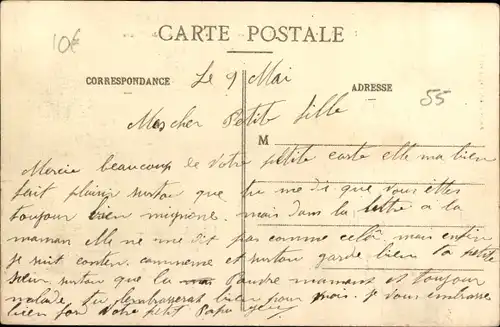 10€
CARTE POSTALE
CORRESPONDANCE
Le 9 Mai
ADRESSE
55
Mes cher Petite fille
M
Mercie beaucoup de votre petite carte elle ma bien
fait plaisir surtou que tu me di que vous ettes
toujour bien mignone. mais dans la lettre a la
maman elle ne me dit pas comme celà mais enfin
je suit conten. et surtou garde bien ta petite
sœur surtou que la Pauvre maman et toujour
malade. tu bien pour mois. je vous embrasse
bien for Votre petit Papa